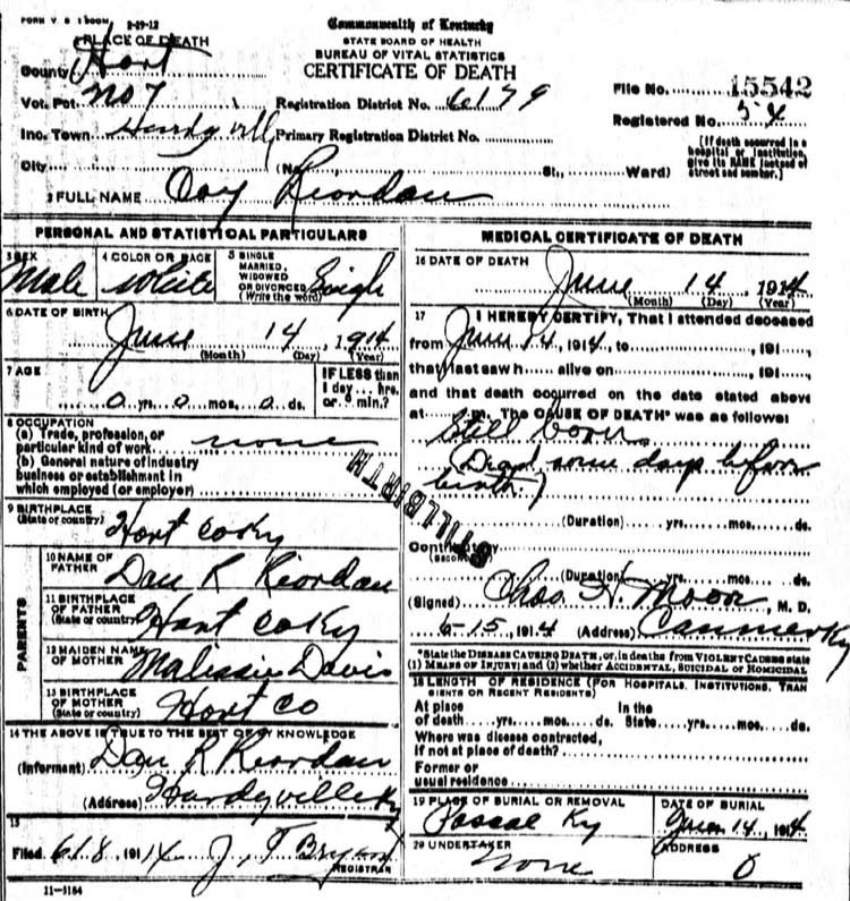 FORM V. S. 1 500M 3-29-12
Commonwealth of Kentucky
STATE BOARD OF HEALTH
BUREAU OF VITAL STATISTICS
CERTIFICATE OF DEATH
1 PLACE OF DEATH
County Hart
Vot. Pct. No 7
Registration District No. 6179
File No. 15542
Registered No. 54
Inc. Town Hardyville
Primary Registration District No.
[If death occurred in a
hospital or institution,
give its NAME instead of
street and number.]
City (No. St., Ward)
2 FULL NAME Riordan
PERSONAL AND STATISTICAL PARTICULARS
3 SEX Male
4 COLOR OR RACE White
5 SINGLE
MARRIED,
WIDOWED
OR DIVORCED
(Write the word) Single
6 DATE OF BIRTH
June 14, 1914
(Month) (Day) (Year)
7 AGE
0 yrs. 0 mos. 0 ds.
IF LESS than
1 day... hrs.
or 0 min.?
8 OCCUPATION
(a) Trade, profession, or
particular kind of work none
(b) General nature of industry
business or establishment in
which employed (or employer)
9 BIRTHPLACE
(State or country) Hart Co Ky
PARENTS
10 NAME OF
FATHER Dan R Riordan
11 BIRTHPLACE
OF FATHER
(State or country) Hart Co Ky
12 MAIDEN NAME
OF MOTHER Malissie Davis
13 BIRTHPLACE
OF MOTHER
(State or country) Hart Co
14 THE ABOVE IS TRUE TO THE BEST OF MY KNOWLEDGE
(Informant) Dan R Riordan
(Address) Hardyville Ky
15
Filed 6 18, 1914 J. T. Bryant
REGISTRAR
11-3184
STILLBIRTH
MEDICAL CERTIFICATE OF DEATH
16 DATE OF DEATH
June 14, 1914
(Month) (Day) (Year)
17 I HEREBY CERTIFY, That I attended deceased
from June 14, 1914, to , 191 ,
that I last saw h alive on , 191 ,
and that death occurred on the date stated above
at m. The CAUSE OF DEATH* was as follows:
Still born
(Dead some days before
birth.)
(Duration) yrs. mos. ds.
Contributory
(Duration) yrs. mos. ds.
(Signed) Chas. H. Moor, M. D.
6-15, 1914 (Address) Canmer Ky
*State the DISEASE CAUSING DEATH, or, in deaths from VIOLENT CAUSES state
(1) MEANS OF INJURY; and (2) whether ACCIDENTAL, SUICIDAL or HOMICIDAL
18 LENGTH OF RESIDENCE (FOR HOSPITALS, INSTITUTIONS, TRAN
SIENTS OR RECENT RESIDENTS)
At place
of death yrs. mos. ds.
In the
State yrs. mos. ds.
Where was disease contracted,
if not at place of death?
Former or
usual residence
19 PLACE OF BURIAL OR REMOVAL
Pascal Ky
DATE OF BURIAL
June 14, 1914
20 UNDERTAKER
none
ADDRESS
0